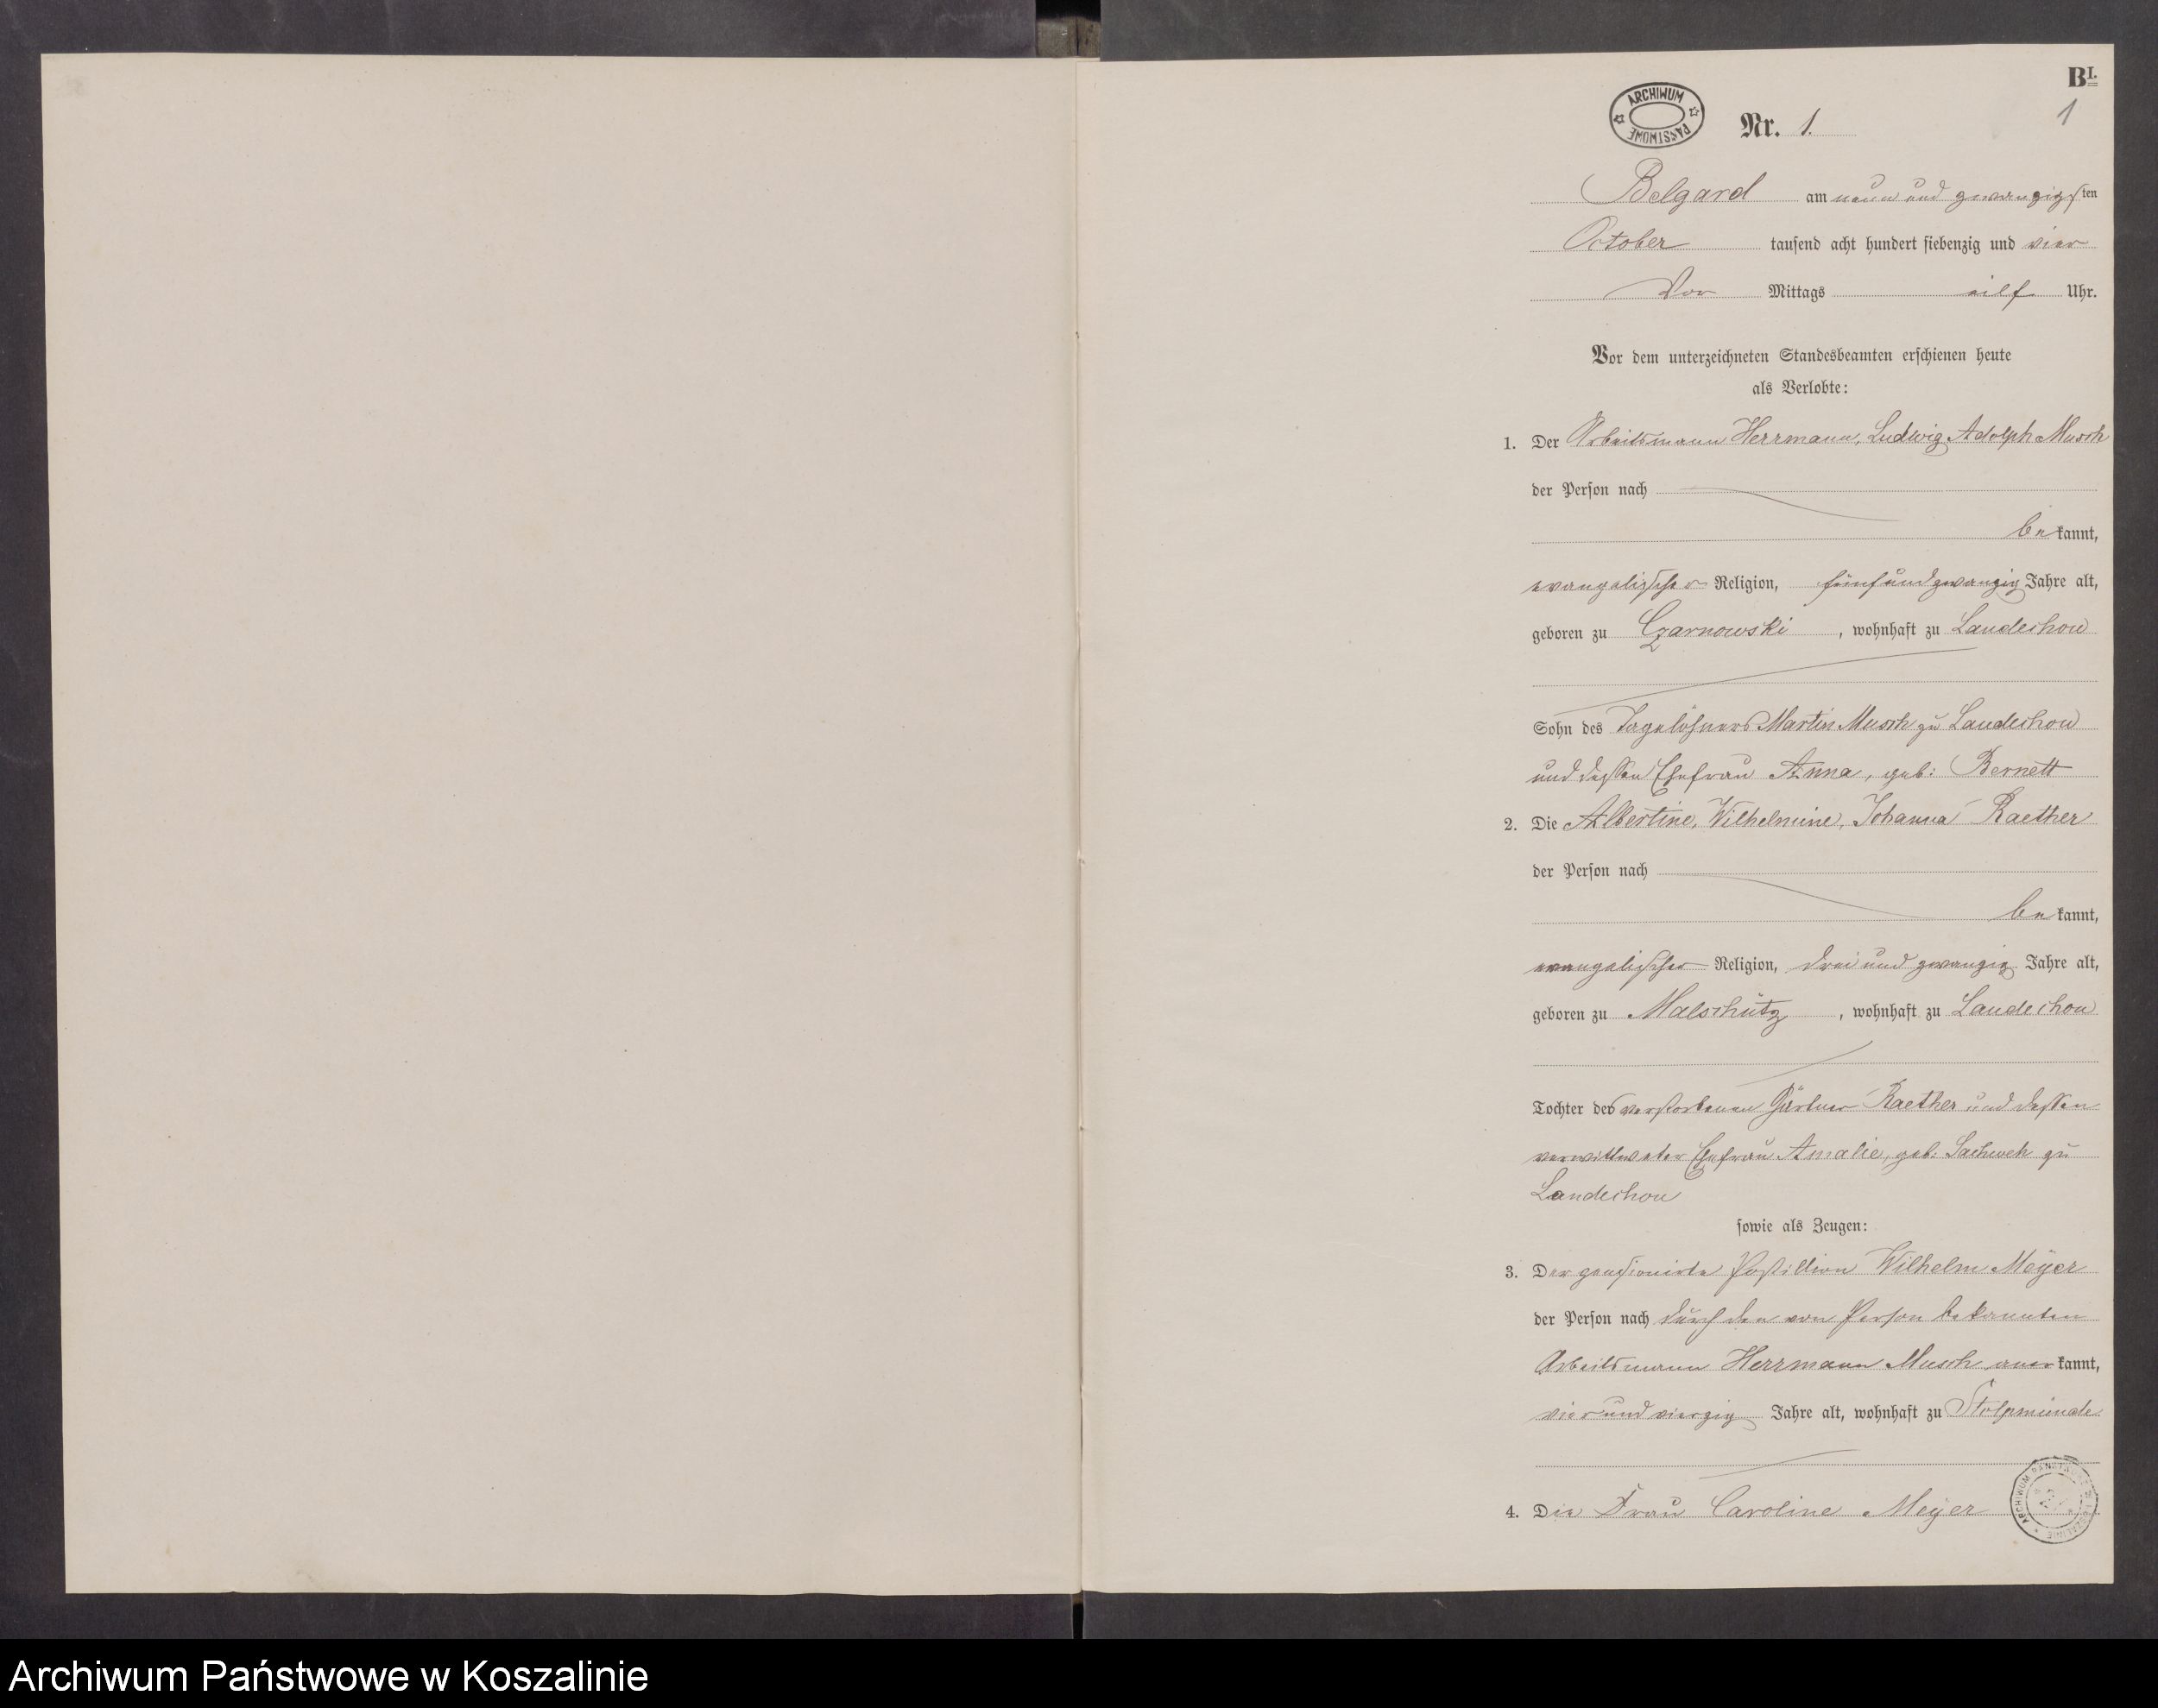 B I.
1
ARCHIWUM PAŃSTWOWE
Nr. 1.
Belgard am neun und zwanzigsten
October tausend acht hundert siebenzig und vier
Vor Mittags eilf Uhr.
Vor dem unterzeichneten Standesbeamten erschienen heute
als Verlobte:
1. Der Arbeitsmann Herrmann, Ludwig Adolph Musch
der Person nach
bekannt,
evangelischer Religion, fünf und zwanzig Jahre alt,
geboren zu Czarnowski, wohnhaft zu Landechow
Sohn des Tagelöhners Martin Musch zu Landechow
und dessen Ehefrau Anna, geb: Bernett
2. Die Albertine, Wilhelmine, Johanna Raether
der Person nach
bekannt,
evangelischer Religion, drei und zwanzig Jahre alt,
geboren zu Malschütz, wohnhaft zu Landechow
Tochter des verstorbenen Gärtner Raether und dessen
verwittweter Ehefrau Amalie, geb: zu
Landechow
sowie als Zeugen:
3. Der pensionirte Postillion Wilhelm Meyer
der Person nach durch den von Person bekannten
Arbeitsmann Herrmann Musch anerkannt,
vier und vierzig Jahre alt, wohnhaft zu Stolpmünde
4. Die Frau Caroline Meyer
Archiwum Państwowe w Koszalinie